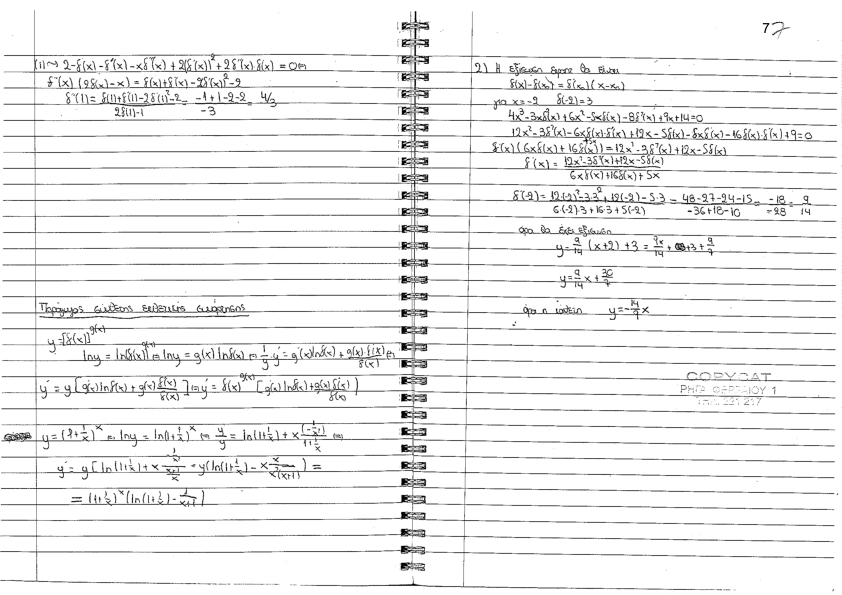 (1) ⇝ 2-f(x)-f'(x)-xf''(x)+2(f'(x))²+2f''(x)f(x) = 0 ⇔
f''(x) (2f(x)-x) = f(x)+f'(x)-2f'(x)²-2
f''(1) = f(1)+f'(1)-2f'(1)²-2 / 2f(1)-1 = -1+1-2-2 / -3 = 4/3
Παράγωγος σύνθετης εκθετικής συνάρτησης
y=[f(x)]^g(x)
lny = ln[f(x)]^g(x) ⇔ lny = g(x) lnf(x) ⇔ 1/y · y' = g'(x)lnf(x) + g(x)·f'(x)/f(x) ⇔
y' = y [g'(x)lnf(x) + g(x) f'(x)/f(x)] ⇔ y' = f(x)^g(x) [g'(x)lnf(x)+g(x)f'(x)/f(x)]
y = (1+1/x)^x ⇔ lny = ln(1+1/x)^x ⇔ y'/y = ln(1+1/x) + x (-1/x²)/(1+1/x) ⇔
y' = y [ln(1+1/x) + x (-1/x²)/((x+1)/x)] = y(ln(1+1/x) - x x/(x²(x+1))) =
= (1+1/x)^x (ln(1+1/x) - 1/(x+1))
77
2) Η εξίσωση εφαπτ θα είναι
f(x)-f(x₀) = f'(x₀)(x-x₀)
για x=-2 f(-2)=3
4x³-3xf²(x)+6x²-5xf(x)-8f²(x)+9x+14=0
12x²-3f²(x)-6xf(x)·f'(x)+12x-5f(x)-5xf'(x)-16f(x)·f'(x)+9=0
f'(x)(6xf(x)+16f(x)+5x) = 12x²-3f²(x)+12x-5f(x)
f'(x) = 12x²-3f²(x)+12x-5f(x) / 6xf(x)+16f(x)+5x
f'(-2) = 12·(-2)²-3·3²+12(-2)-5·3 / 6·(-2)·3+16·3+5(-2) = 48-27-24-15 / -36+18-10 = -18/-28 = 9/14
άρα θα έχει εξίσωση
y = 9/14 (x+2)+3 = 9x/14 + 3 + 9/7
y = 9/14 x + 30/7
άρα η y = -14/9 x
COPYCAT
ΡΗΓΑ ΦΕΡΡΑΙΟΥ 1